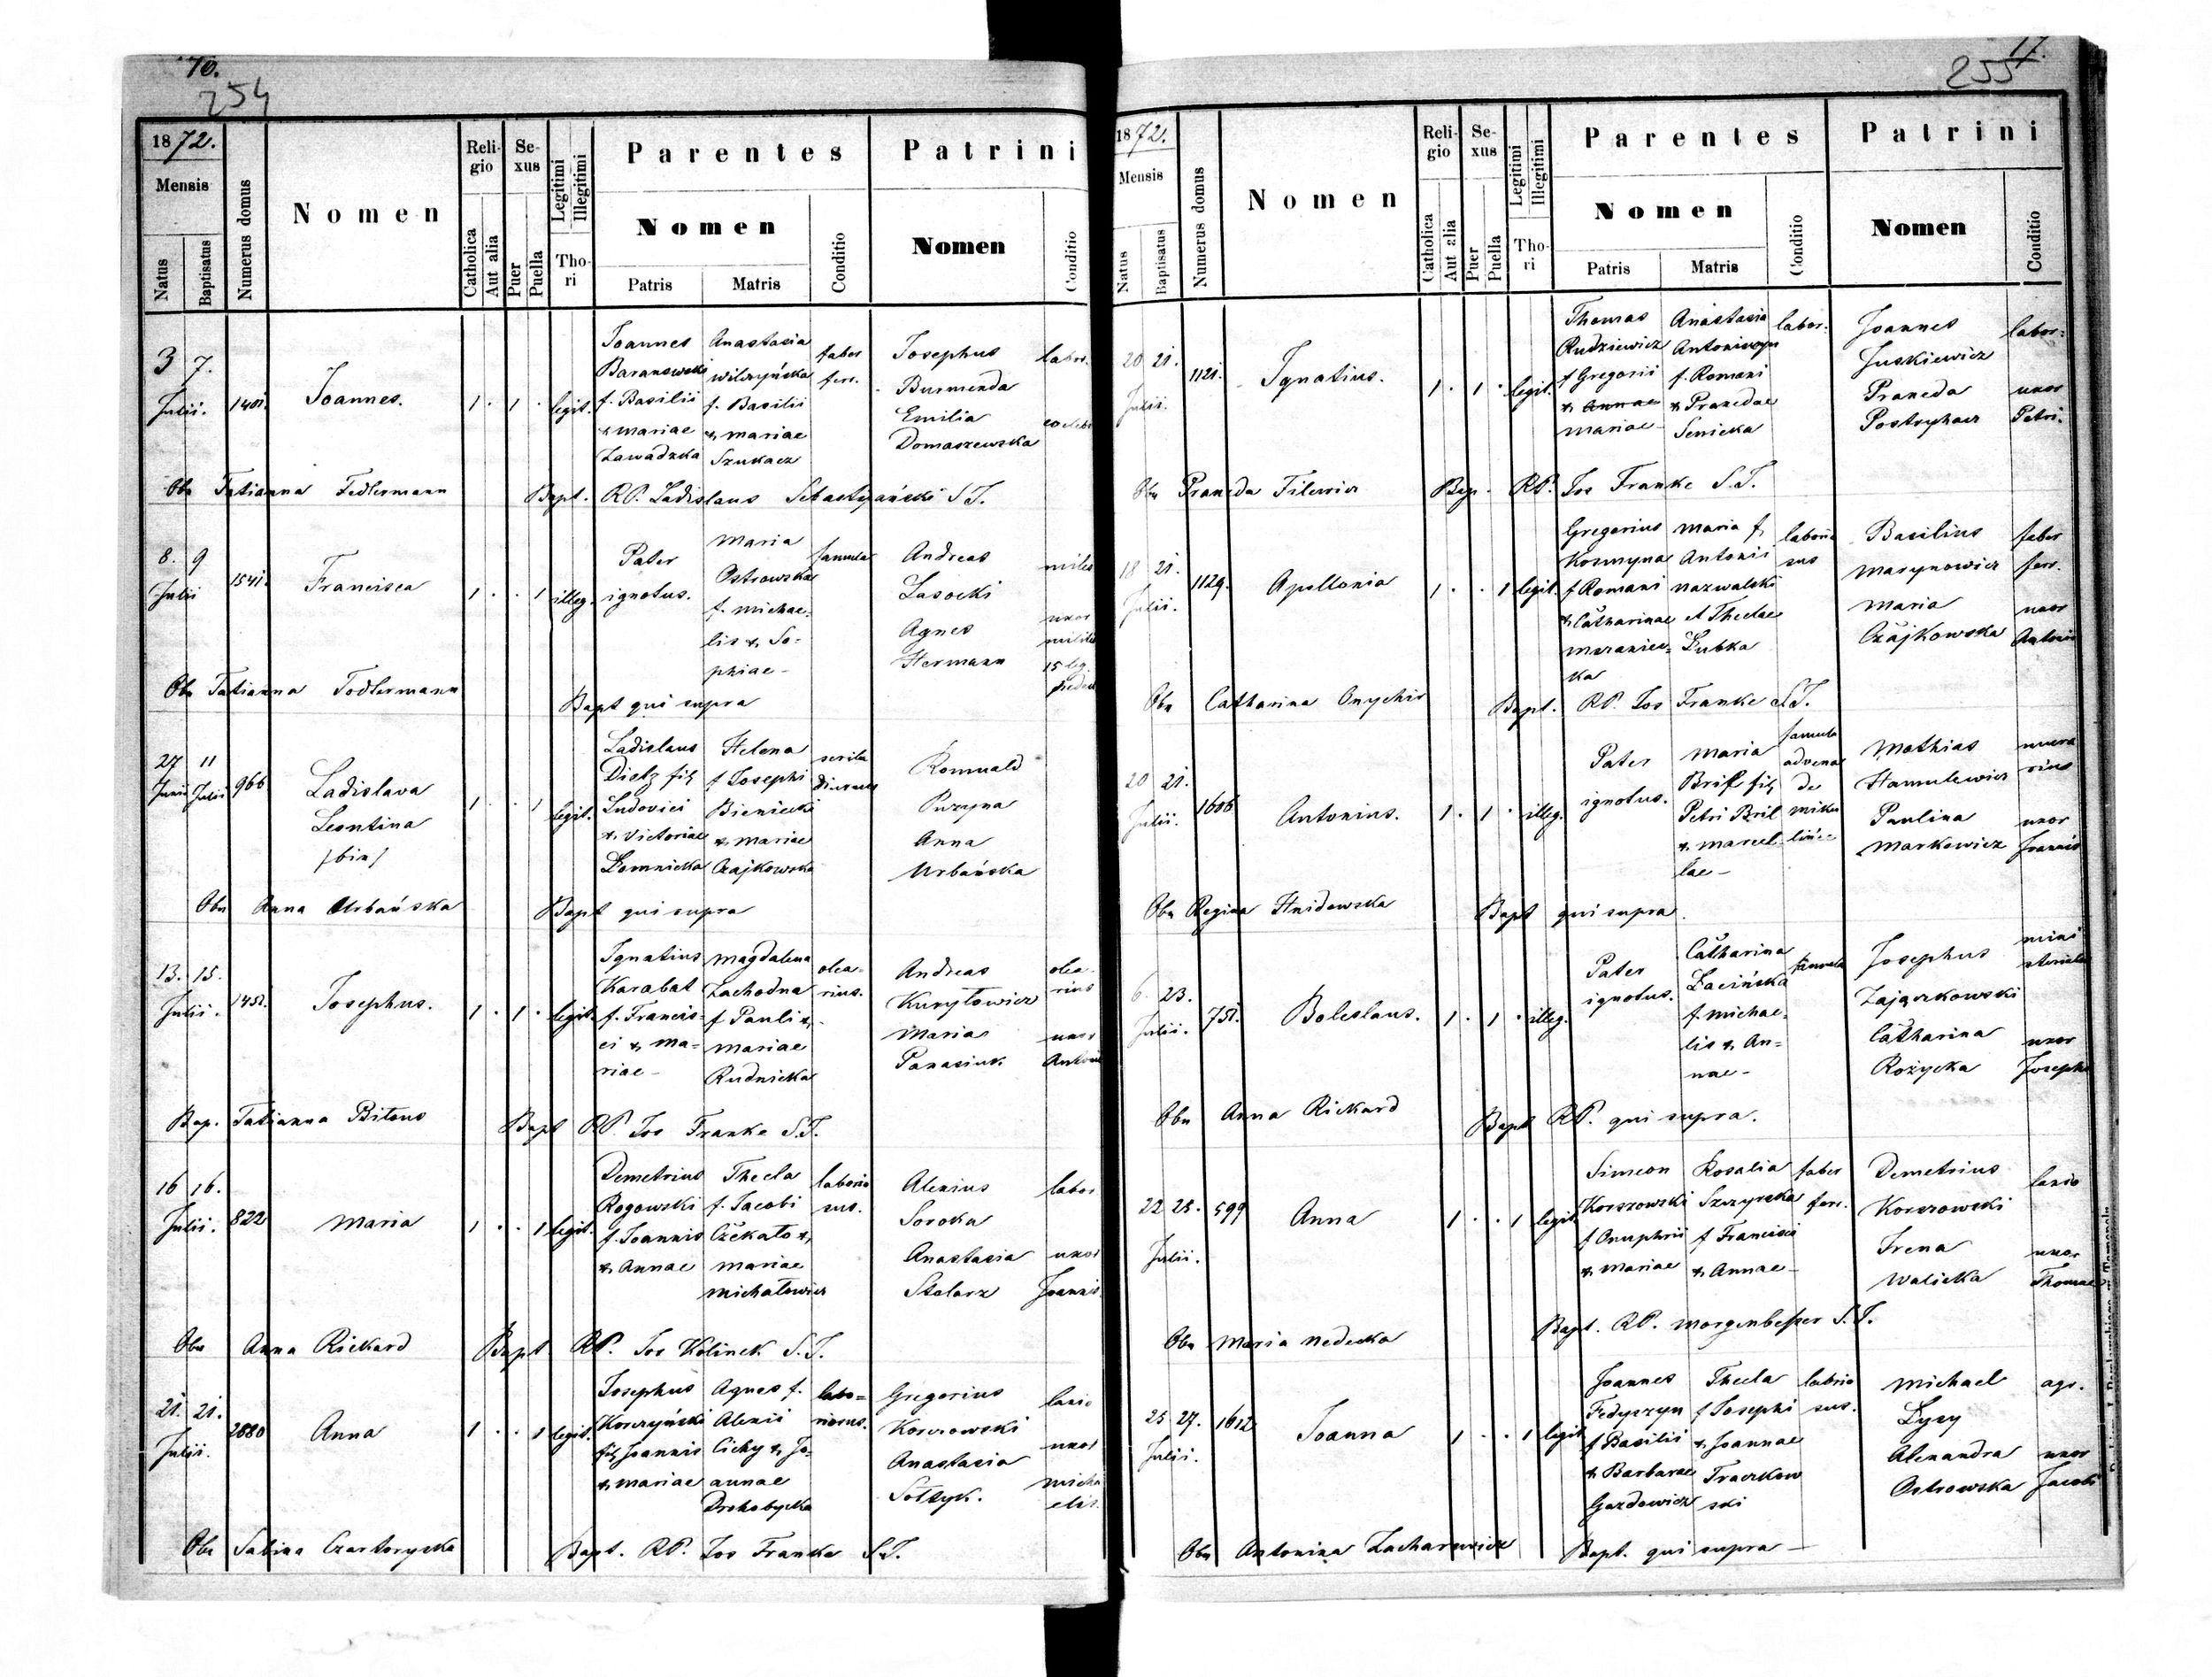 70.
254
1872.
Mensis
Natus
Baptisatus
Numerus domus
Nomen
Religio
Catholica
Aut alia
Sexus
Puer
Puella
Legitimi
Illegitimi
Thori
Parentes
Nomen
Patris
Matris
Conditio
Patrini
Nomen
Conditio
3 7. Julii. 1401. Joannes. 1 . 1 . legit.
Joannes Baranowski f. Basilii & Mariae Zawadzka
Anastasia Wilczyńska f. Basilii & Mariae Szukacz
faber ferr.
Josephus Burmenda labor.
Emilia Domaszewska
Obs Tatianna Fedlermann Bapt. RP. Ladislaus Sebastyański S.J.
8. 9 Julii 1541. Francisca 1 . . 1 illeg.
Pater ignotus.
Maria Ostrowska f. Michaelis & Sophiae
famula
Andreas Lasocki miles
Agnes Hermann uxor militis 15 leg.
Obs Tatianna Todlermann Bapt qui supra
27 Junii 11 Julii 966 Ladislava Leontina /bin/ 1 . . 1 legit.
Ladislaus Dietz fil. Ludovici & Victoriae Łomnicka
Helena f Josephi Bieniecki & Mariae Czajkowska
scriba diurnus
Romuald Puzyna
Anna Urbańska
Obs Anna Urbańska Bapt qui supra
13. 15. Julii. 1451. Josephus. 1 . 1 . legit.
Ignatius Karabat f. Francisci & Mariae
Magdalena Zachodna f Pauli & Mariae Rudnicka
olearius.
Andreas Kuryłowicz olearius
Maria Panasiuk uxor Antonii
Bap. Tatianna Bitous Bapt RP. Jos Franke S.J.
16 16. Julii. 822 Maria 1 . . 1 legit.
Demetrius Rogowski f. Joannis & Annae
Thecla f. Jacobi Czekato & Mariae Michałowicz
laboriosus.
Alexius Soroka labor
Anastasia Stolarz uxor Joannis.
Obs Anna Rickard Bapt RP. Jos Kolinek S.J.
21. 21. Julii. 2880 Anna 1 . . 1 legit.
Josephus Korczyński fil Joannis & Mariae
Agnes f. Alexii Cichy & Joannae Drohobycka
laboriosus.
Gregorius Korsowski lanio
Anastasia Sołtyk. uxor Michaelis.
Obs Sabina Czartoryska Bapt. RP. Jos Franke S.J.
17.
255
1872.
Mensis
Natus
Baptisatus
Numerus domus
Nomen
Religio
Catholica
Aut alia
Sexus
Puer
Puella
Legitimi
Illegitimi
Thori
Parentes
Nomen
Patris
Matris
Conditio
Patrini
Nomen
Conditio
20 21. Julii. 1121. Ignatius. 1 . 1 . legit.
Thomas Rudziewicz f Gregorii & Annae Mariae
Anastasia Antoniszyn f. Romani & Praxedae Senicka
labor.
Joannes Juskiewicz labor.
Praxeda Postryhacz uxor Petri.
Obs Praxeda Filewicz Bap. RP. Jos Franke S.J.
18 21. Julii. 1129. Apollonia 1 . . 1 legit.
Gregorius Kosmyna f Romani & Catharinae
Maria f. Antonii Nazwalski et Theclae Łubka
laboriosus
Basilius Marynowicz faber ferr.
Maria Czajkowska uxor Antonii
Obs Catharina Onychir Bapt. RP. Jos Franke S.J.
20 21. Julii. 1606 Antonius. 1 . 1 . illeg.
Pater ignotus.
Maria Bril fil. Petri Bril & Marcellae
famula advena de Mikulińce
Mathias Hamulewicz murarius
Paulina Markowicz uxor Francis
Obs Regina Hnidowska Bapt qui supra.
6. 23. Julii. 751. Boleslaus. 1 . 1 . illeg.
Pater ignotus.
Catharina Łacińska f. Michaelis & Annae
famula
Josephus Zajączkowski
Catharina Rożycka uxor Josephi
Obs Anna Rickard Bapt RP. qui supra.
22 23. Julii. 599 Anna 1 . . 1 legit.
Simeon Korszowski f Onuphrii & Mariae
Rosalia Szczyrska f Francisci & Annae
faber ferr.
Demetrius Korszowski lanio
Irena Walicka uxor Thomae
Obs Maria Nedecka Bapt. RP. Morgenbesser S.J.
25 27. Julii. 1612 Joanna 1 . . 1 legit
Joannes Fedyszyn f Basilii & Barbarae Gazdowicz
Thecla f Josephi & Joannae Traczkowski
laboriosus.
Michael Łysy agr.
Alexandra Ostrowska uxor Jacobi
Obs Antonina Zacharewicz Bapt. qui supra